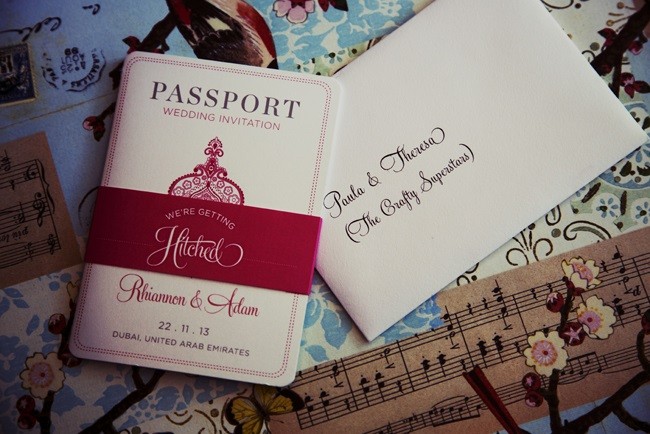 PASSPORT
WEDDING INVITATION
WE'RE GETTING
Hitched
Rhiannon & Adam
22 . 11 . 13
DUBAI, UNITED ARAB EMIRATES
Paula & Theresa
(The Crafty Superstars)